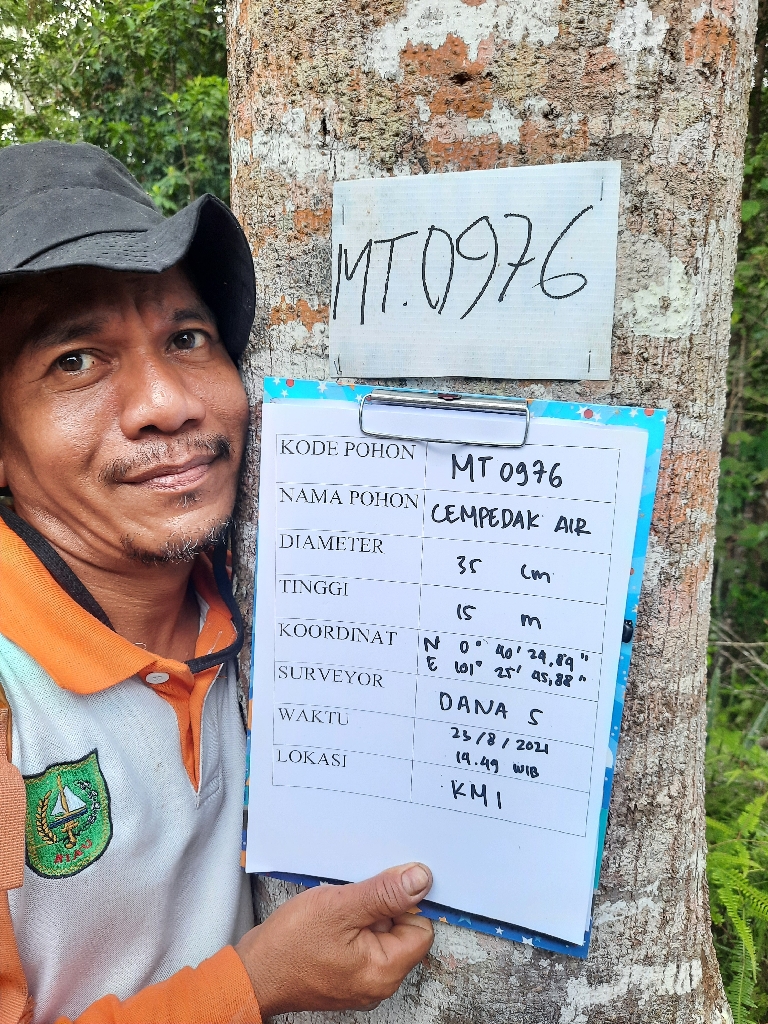 MT.0976
KODE POHON MT 0976
NAMA POHON CEMPEDAK AIR
DIAMETER 35 cm
TINGGI 15 m
KOORDINAT N 0° 40' 24,84"
E 101° 25' 45,88"
SURVEYOR DANA S
WAKTU 23/8/2021
14.49 WIB
LOKASI KM1
RIAU